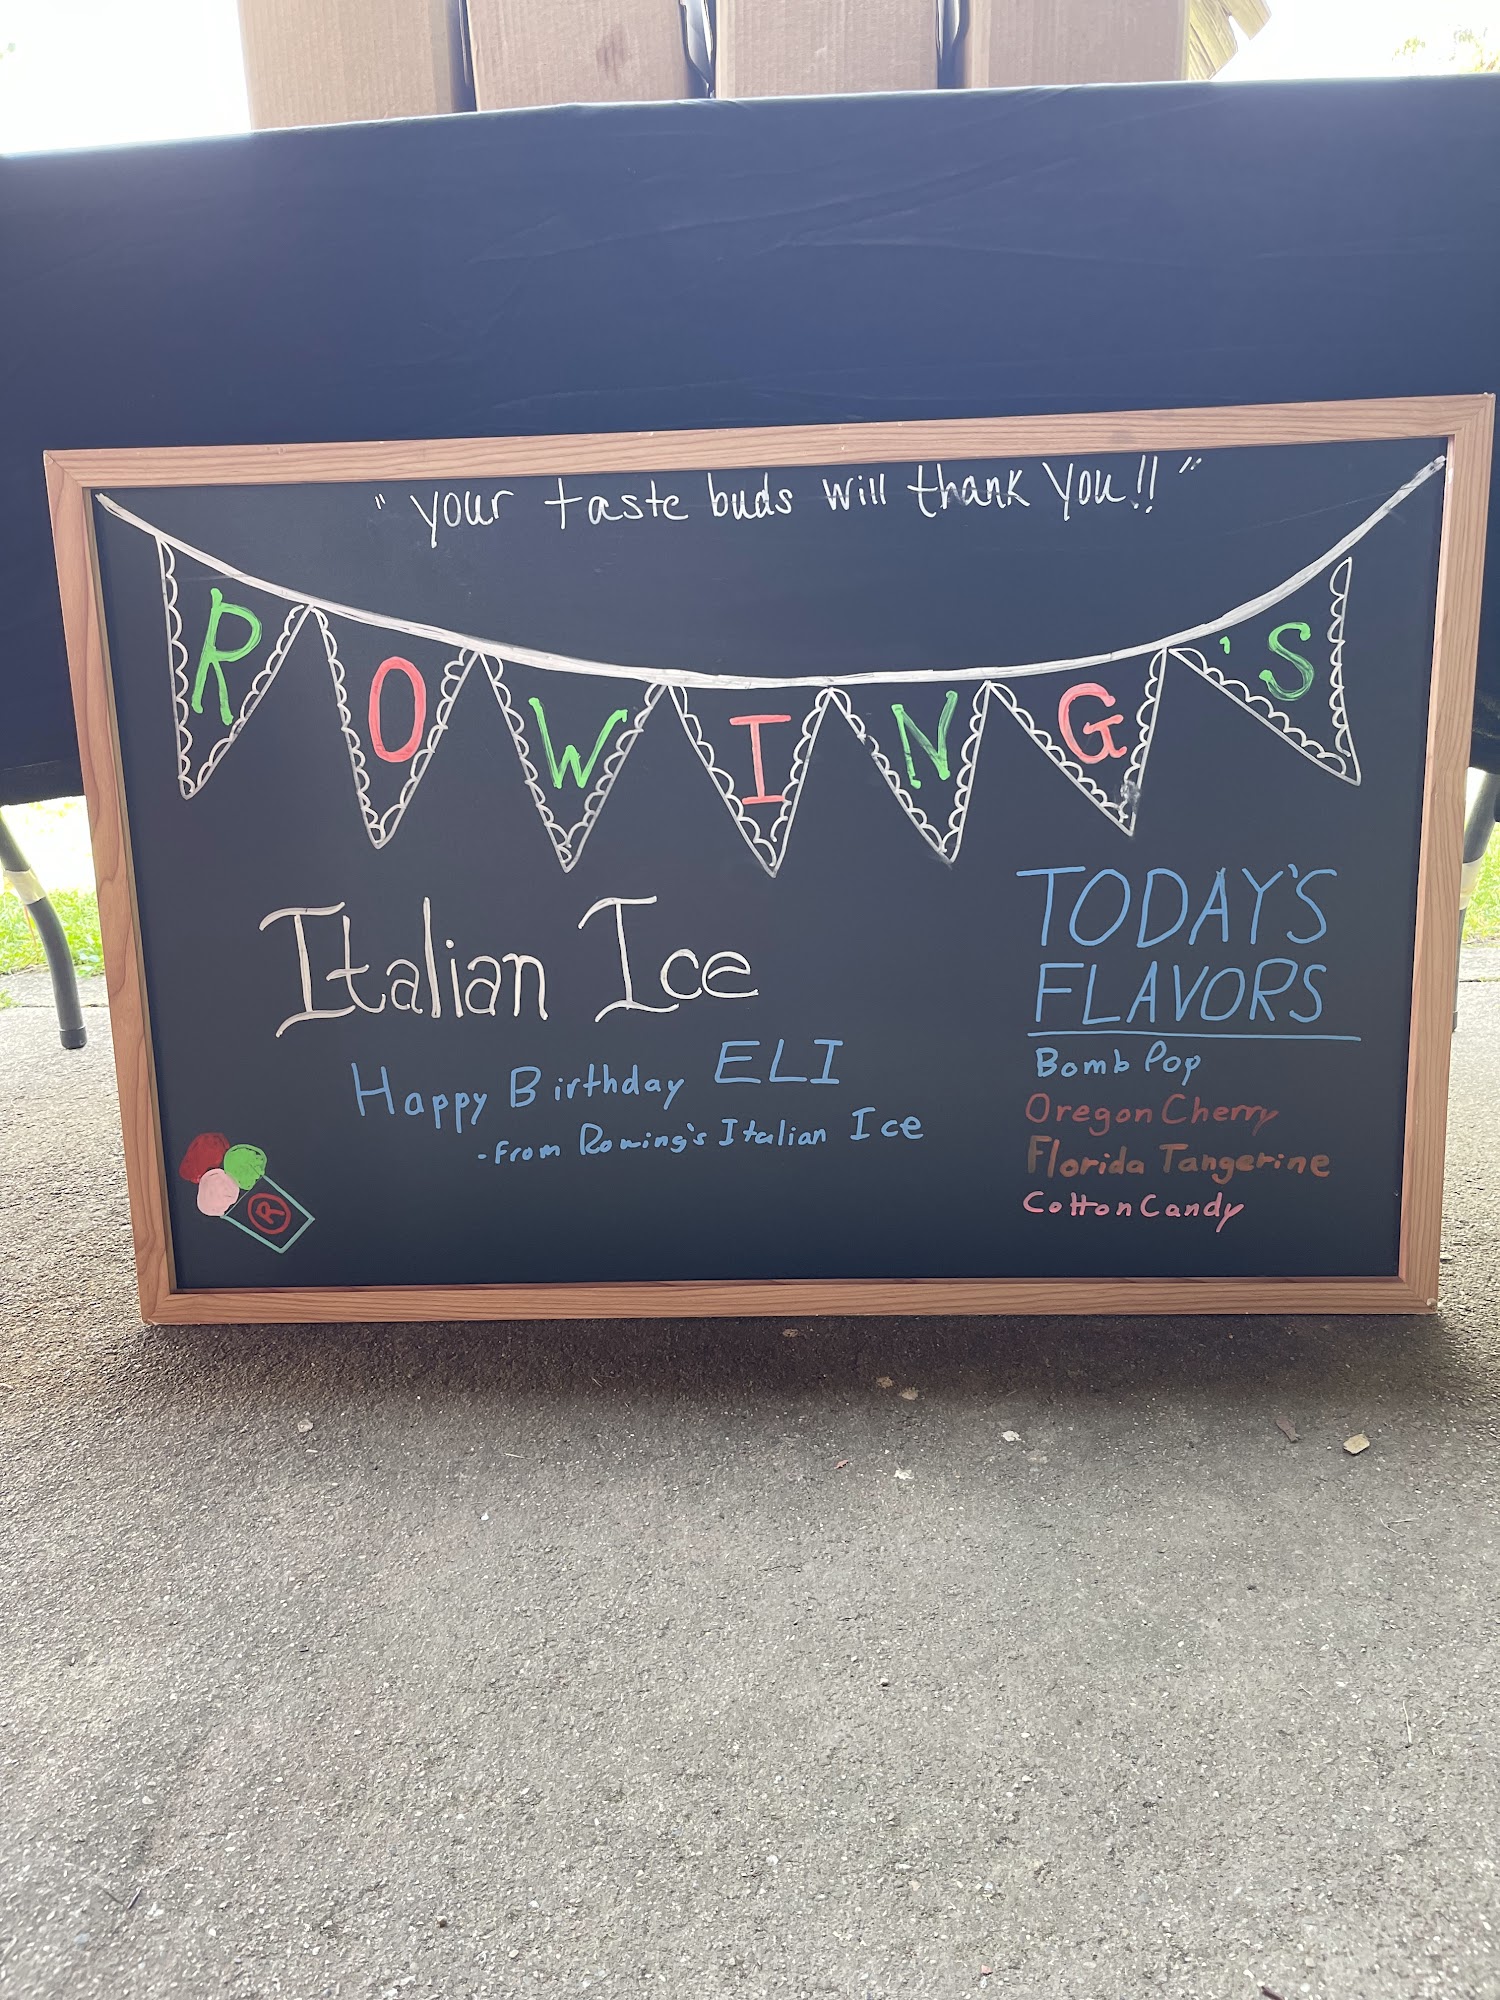 "your taste buds will thank you!!"
ROWING'S
Italian Ice
Happy Birthday ELI
-From Rowing's Italian Ice
R
TODAY'S
FLAVORS
Bomb Pop
Oregon Cherry
Florida Tangerine
Cotton Candy